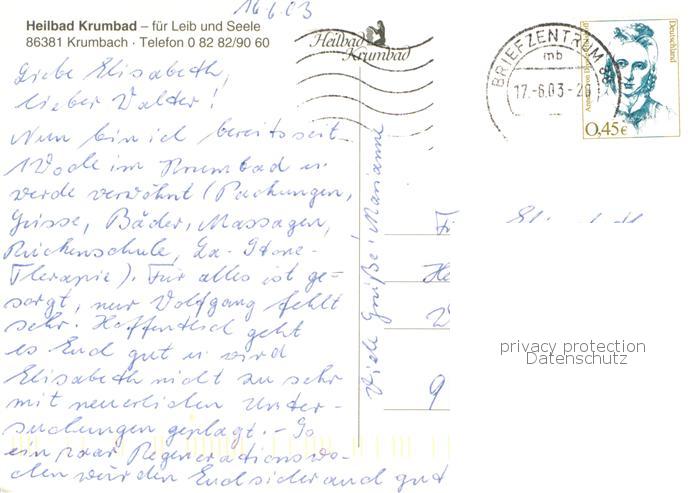 16.6.03
Heilbad Krumbad – für Leib und Seele
86381 Krumbach · Telefon 0 82 82/90 60
Heilbad
Krumbad
BRIEFZENTRUM 86
mb
17.-6.03-20
Deutschland
0,45€
Liebe Elisabeth,
lieber Walter!
Nun bin ich bereits seit
1 Woche im Krumbad u.
werde verwöhnt (Packungen,
Güsse, Bäder, Massagen,
Rückenschule, La-Stone-
Therapie). Für alles ist ge-
sorgt, nur Wolfgang fehlt
sehr. Hoffentlich geht
es Euch gut u. wird
Elisabeth nicht zu sehr
mit neuerlichen Unter-
suchungen geplagt. – So
ein paar Regenerationswo-
chen würden Euch sicher auch gut
Viele Grüße! Marianne
privacy protection
Datenschutz